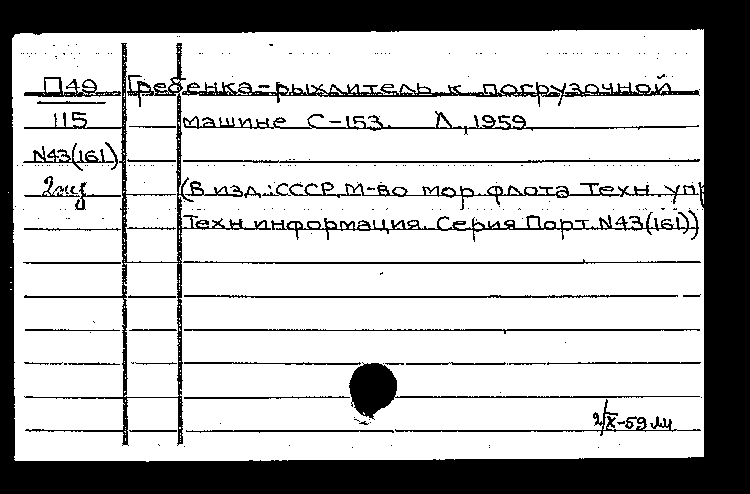 П49 Гребенка-рыхлитель к погрузочной
115 машине С-153. Л., 1959.
N43(161)
2 экз (В изд.: СССР. М-во мор. флота Техн. упр
Техн. информация. Серия Порт. N43(161))
2/X-59